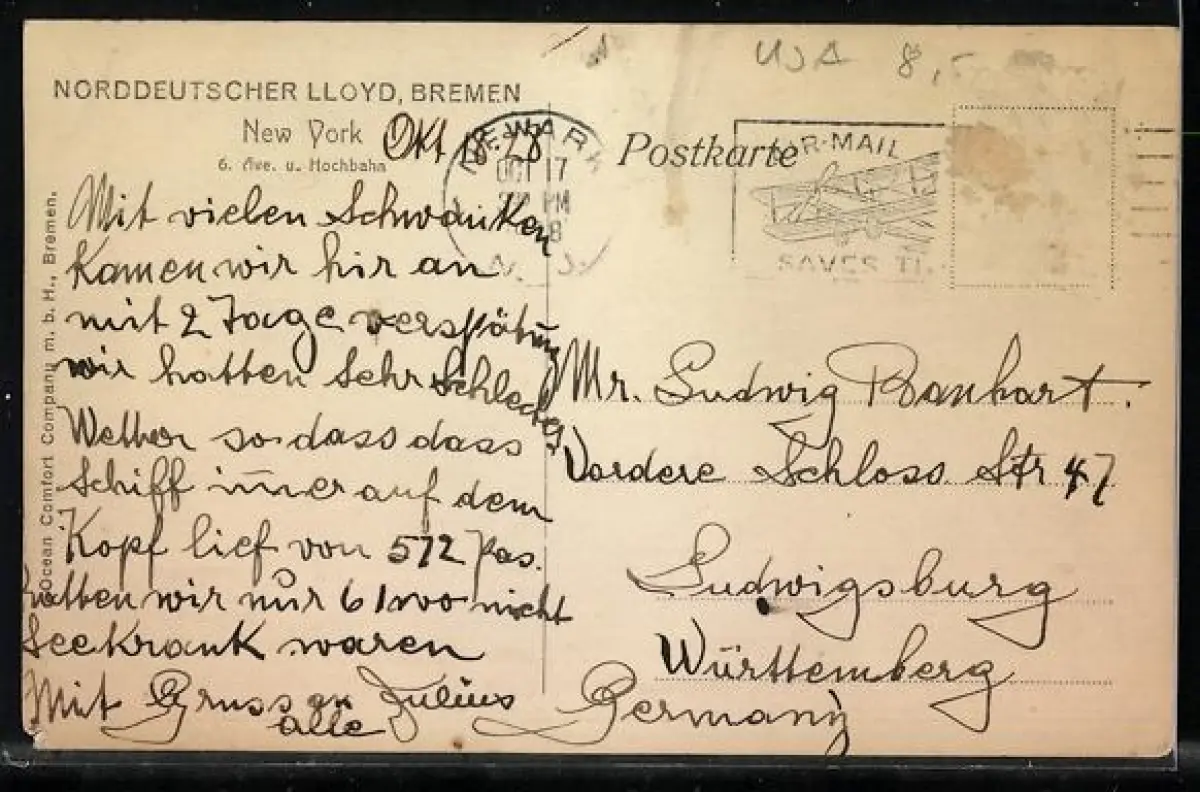 USA 8,-
NORDDEUTSCHER LLOYD, BREMEN
New York
6. Ave. u. Hochbahn
Okt 18-28
NEWARK
OCT 17
PM
8
N. J.
Postkarte
AIR-MAIL
SAVES TI
Ocean Comfort Company m. b. H., Bremen.
Mit vielen Schwanken
Kamen wir hir an
mit 2 Tage verspätung
wir hatten Sehr Schlechtes
Wetter so dass dass
Schiff imer auf dem
Kopf lief von 572 Pas.
hatten wir nur 6 wo nicht
Seekrank waren
Mit Gruss an Julius
alle
Mr. Ludwig Banhart.
Vordere Schloss Str 47
Ludwigsburg
Württemberg
Germany